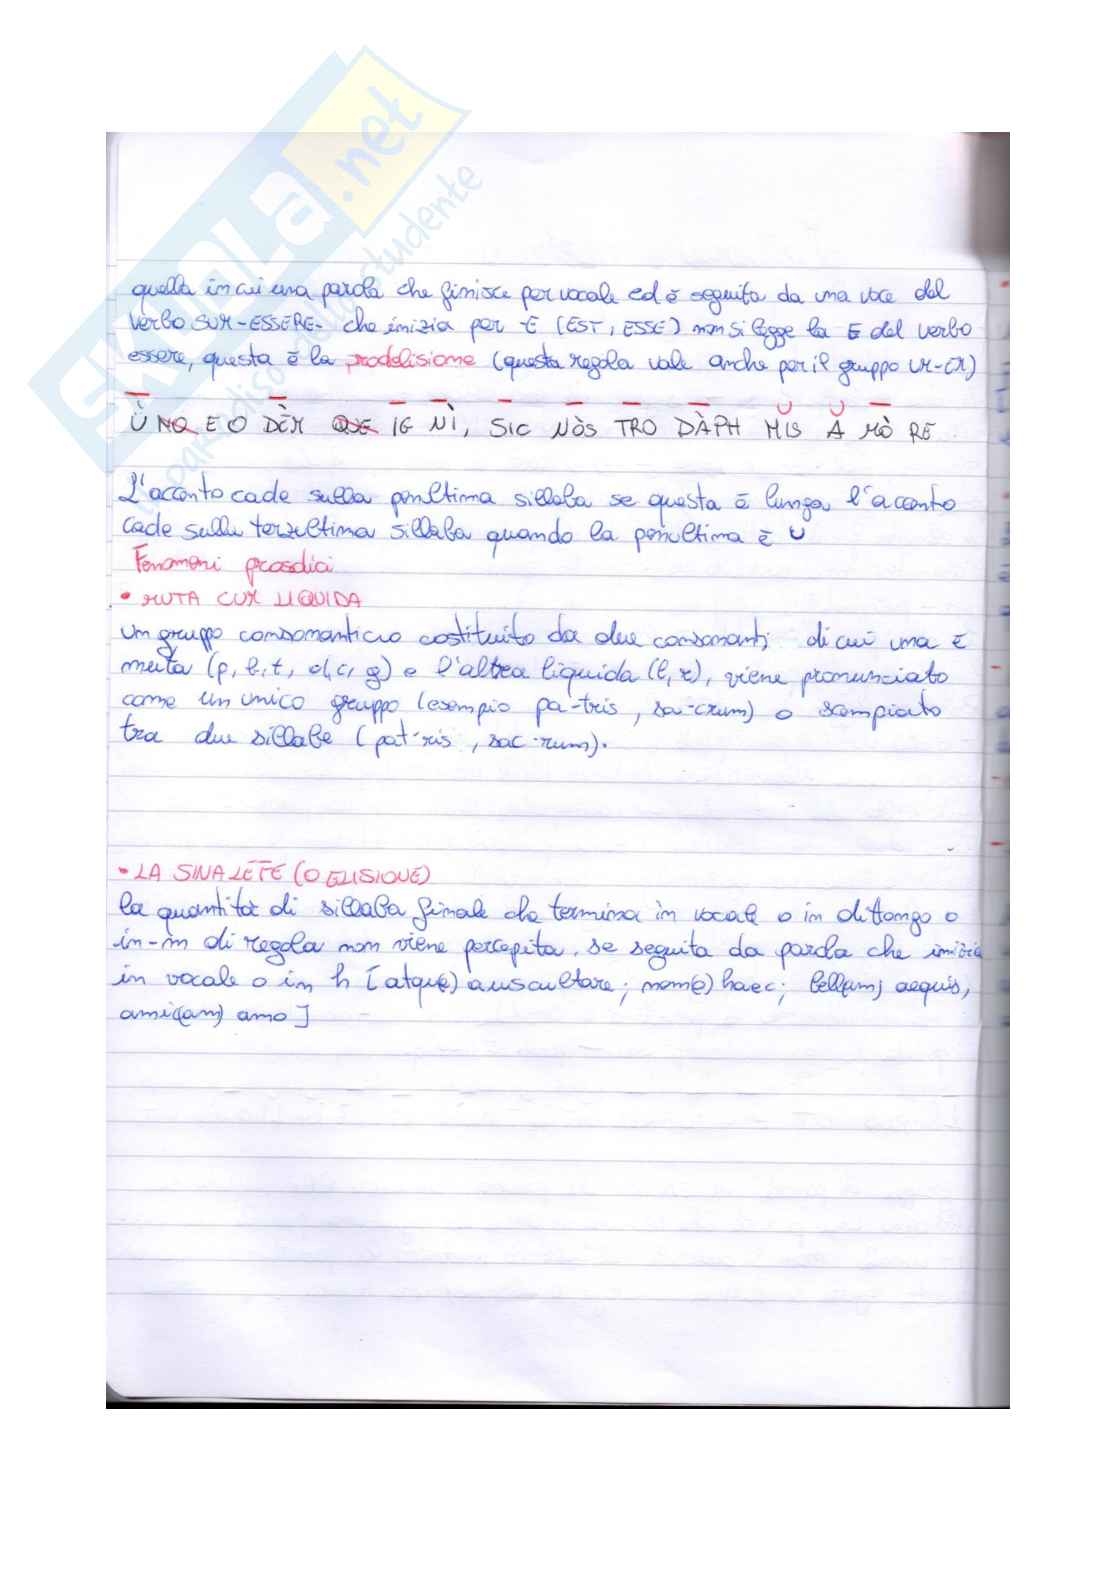 SKUOLA.net
il paradiso dello studente
quella in cui una parola che finisce per vocale ed è seguita da una voce del
verbo SUM-ESSERE- che inizia per -E (EST, ESSE) non si legge la E del verbo
essere, questa è la prodelisione (questa regola vale anche per il gruppo
Ù NO E O DÈM QUE IG NÌ, SIC NÒS TRO DÀPH NIS A MÒ RE
L'accento cade sulla penultima sillaba se questa è lunga l'accento
cade sulla terzultima sillaba quando la penultima è ∪
Fenomeni prosodici
• MUTA CUM LIQUIDA
un gruppo consonantico costituito da due consonanti di cui una è
muta (p, b, t, d, c, g) e l'altra liquida (l, r), viene pronunciato
come un unico gruppo (esempio pa-tris, sa-crum) o scempiato
tra due sillabe (pat-ris, sac-rum).
• LA SINALÈFE (O ELISIONE)
la quantità di sillaba finale che termina in vocale o in dittongo o
in -m di regola non viene percepita, se seguita da parola che inizia
in vocale o in h [atqu(e) auscultare; nom(e) haec; bell(um) aequis,
amic(am) amo]